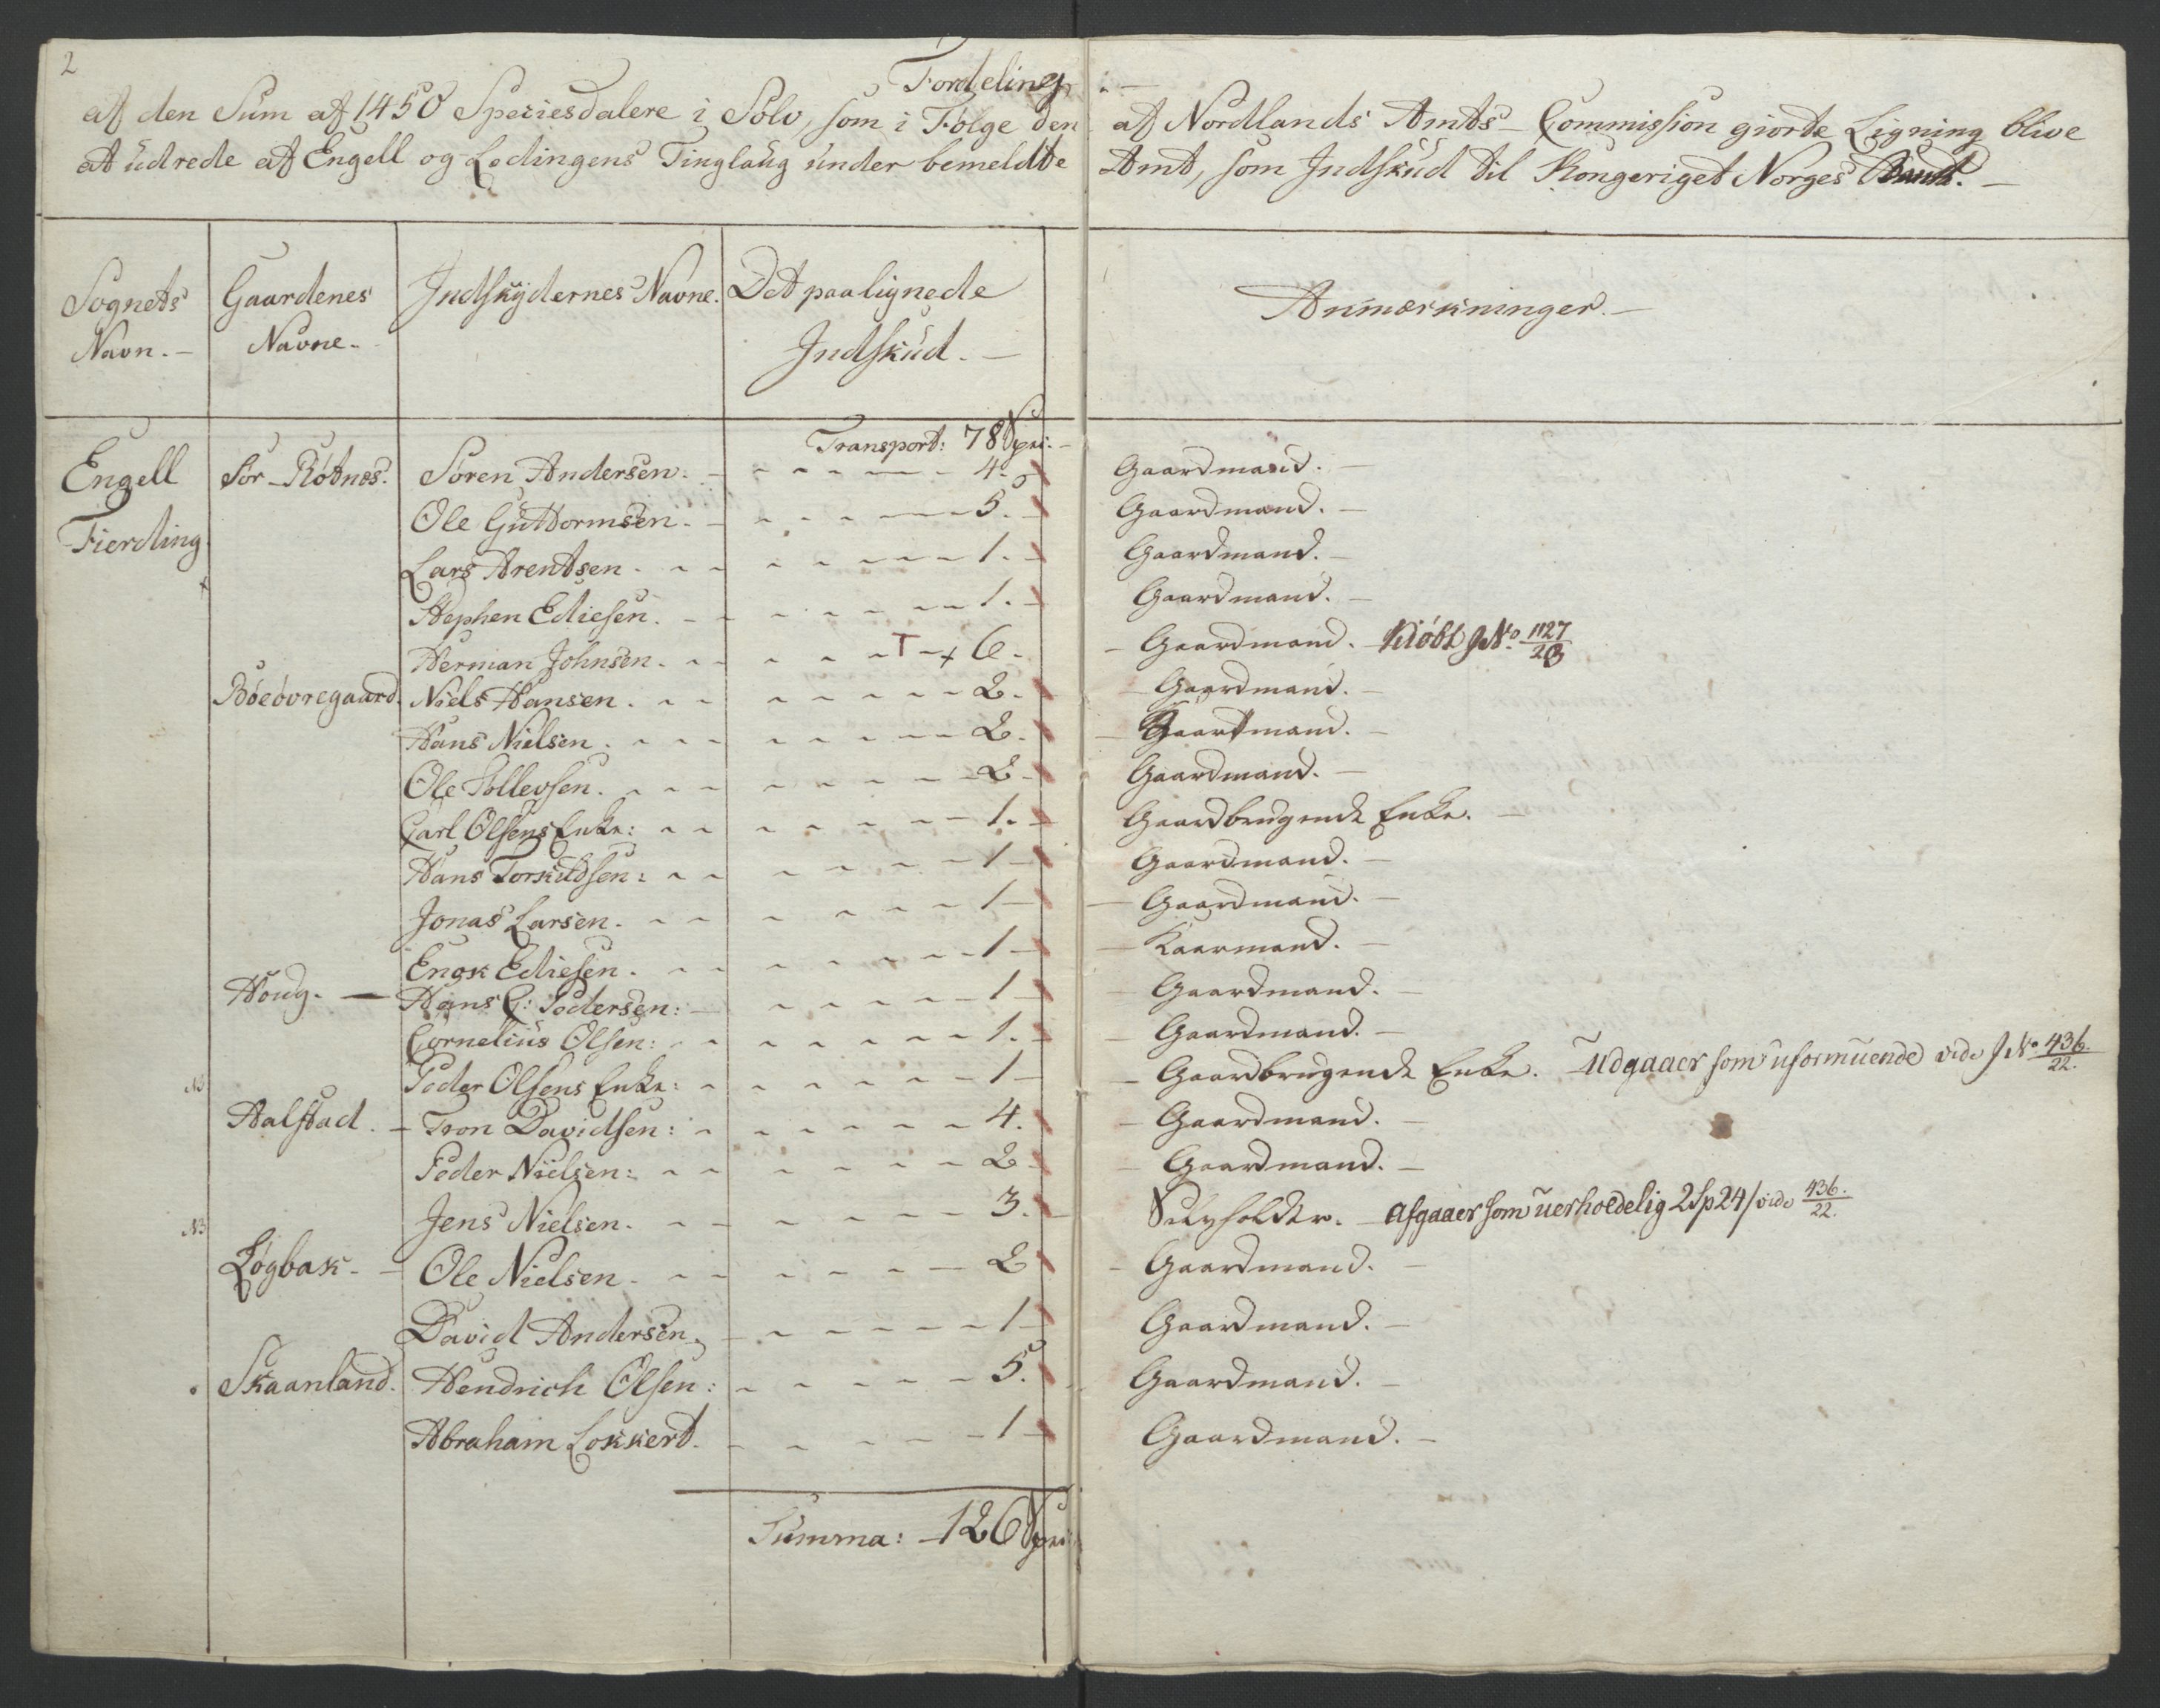 2
Fordeling
af den Sum af 1450 Speciesdalere i Sølv, som i Følge den af Nordlands Amts Commission giorte Ligning blive
at udrede af Engell og Lødingens Tinglaug under bemeldte Amt, som Indskud til Kongeriget Norges Bank.
Sognets Navn. Gaardenes Navne. Indskydernes Navne. Det paalignede Indskud. Anmærkninger.
Transport: 78 Spec:
Engell Sør-Røtnes. Søren Andersen. 4. Gaardmand.
Fierding Ole Guttormsen. 5. Gaardmand.
Lars Arentsen. 1. Gaardmand.
Stephen Ediesen. 1. Gaardmand.
Herman Johnsen. T x 6. Gaardmand. Kiøbt J No. 1127/20
Bøeøvregaard. Niels Hansen. 2. Gaardmand.
Hans Nielsen. 2. Gaardmand.
Ole Tollevsen. 2. Gaardmand.
Carl Olsens Enke: 1. Gaardbrugende Enke.
Hans Torkildsen: 1 Gaardmand.
Jonas Larsen. 1 Gaardmand.
Engk Ediesen. 1 Kaarmand.
Houg. Hans C: Pedersen: 1 Gaardmand.
Cornelius Olsen: 1. Gaardmand.
NB Peder Olsens Enke: 1 Gaardbrugende Enke. Udgaaer som uformuende vide J No 436/22.
Aalstad. Tron Davidsen: 4. Gaardmand.
Peder Nielsen: 2 Gaardmand.
NB Jens Nielsen. 3. Afgaaer som uerholdelig 2 Sp 24/ vide 436/22.
Løgbak. Ole Nielsen. 2 Gaardmand.
David Andersen 1 Gaardmand.
Skaanland. Hendrich Olsen: 5. Gaardmand.
Abraham Lokkert. 1 Gaardmand.
Summa: 126 Spec